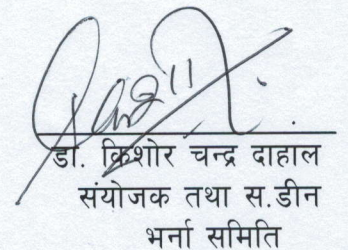 डा. किशोर चन्द्र दाहाल
संयोजक तथा स.डीन
भर्ना समिति